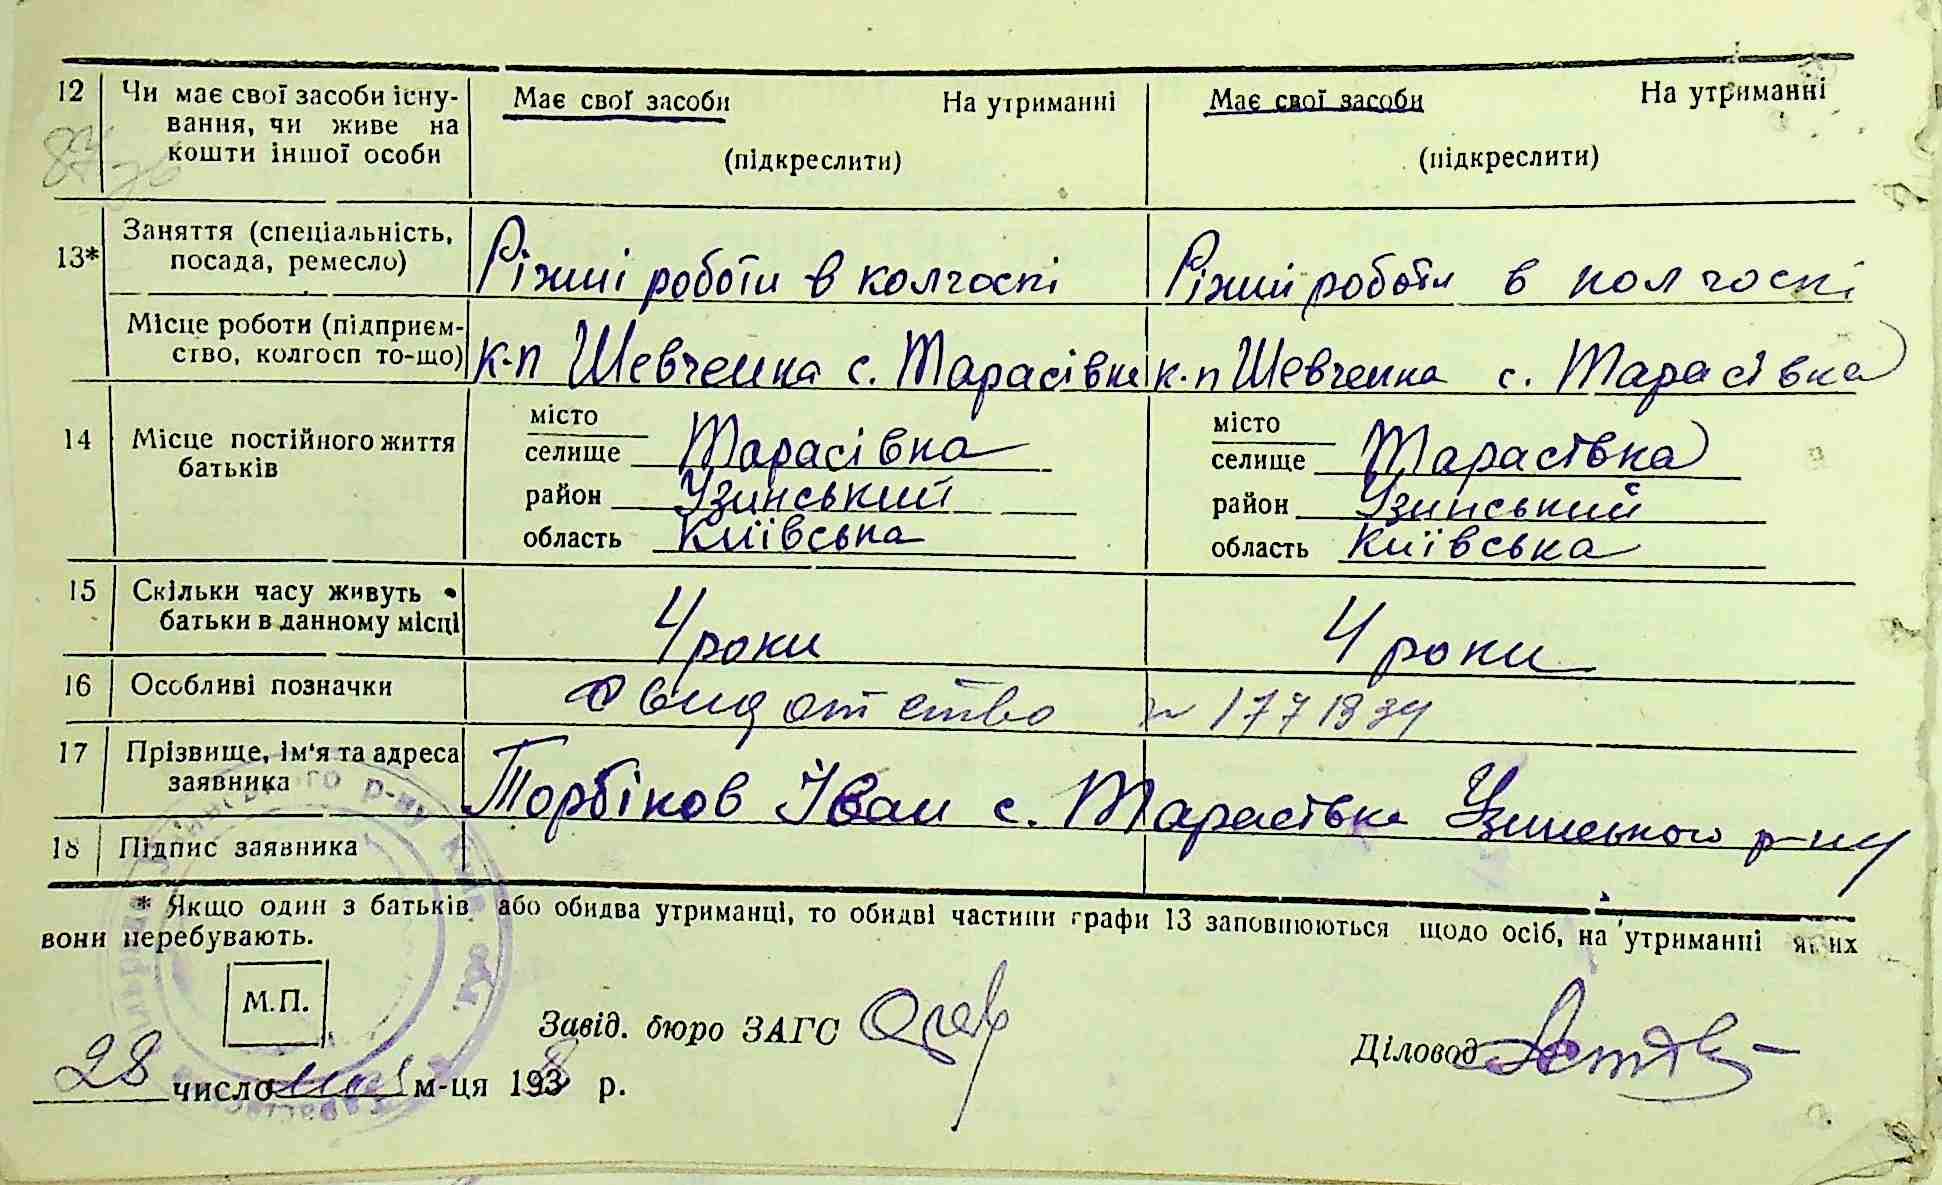 12 Чи має свої засоби існу- Має свої засоби На утриманні Має свої засоби На утриманні
вання, чи живе на
кошти іншої особи (підкреслити) (підкреслити)
Заняття (спеціальність,
13* посада, ремесло) Ріжні роботи в колгоспі Ріжні роботи в колгоспі
Місце роботи (підприєм-
ство, колгосп то-що) к-п Шевченка с. Тарасівка к-п Шевченка с. Тарасівка
місто місто
14 Місце постійного життя селище Тарасівка селище Тарасівка
батьків район Узинський район Узинський
область Київська область Київська
15 Скільки часу живуть
батьки в данному місці 4 роки 4 роки
16 Особливі позначки № 1771934
17 Прізвище, ім'я та адреса
заявника Торбіков Іван с. Тарасівка Узинського р-ну
18 Підпис заявника
* Якщо один з батьків або обидва утриманці, то обидві частини графи 13 заповнюються щодо осіб, на утриманні яких
вони перебувають.
М.П.
Завід. бюро ЗАГС
Діловод
28 число м-ця 1938 р.